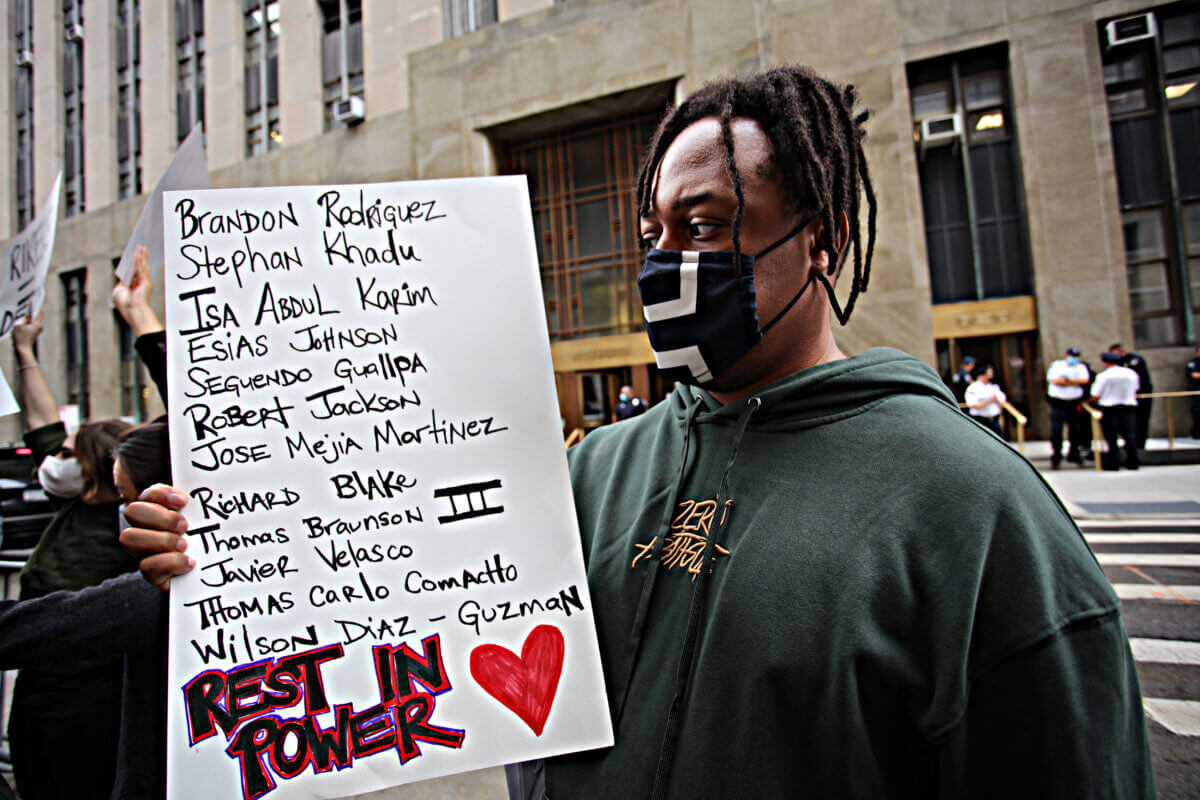 Brandon Rodriguez
Stephan Khadu
Isa Abdul Karim
Esias Johnson
Seguendo Guallpa
Robert Jackson
Jose Mejia Martinez
Richard Blake
Thomas Braunson III
Javier Velasco
Thomas Carlo Comacho
Wilson Diaz - Guzman
REST IN
POWER
ZERO